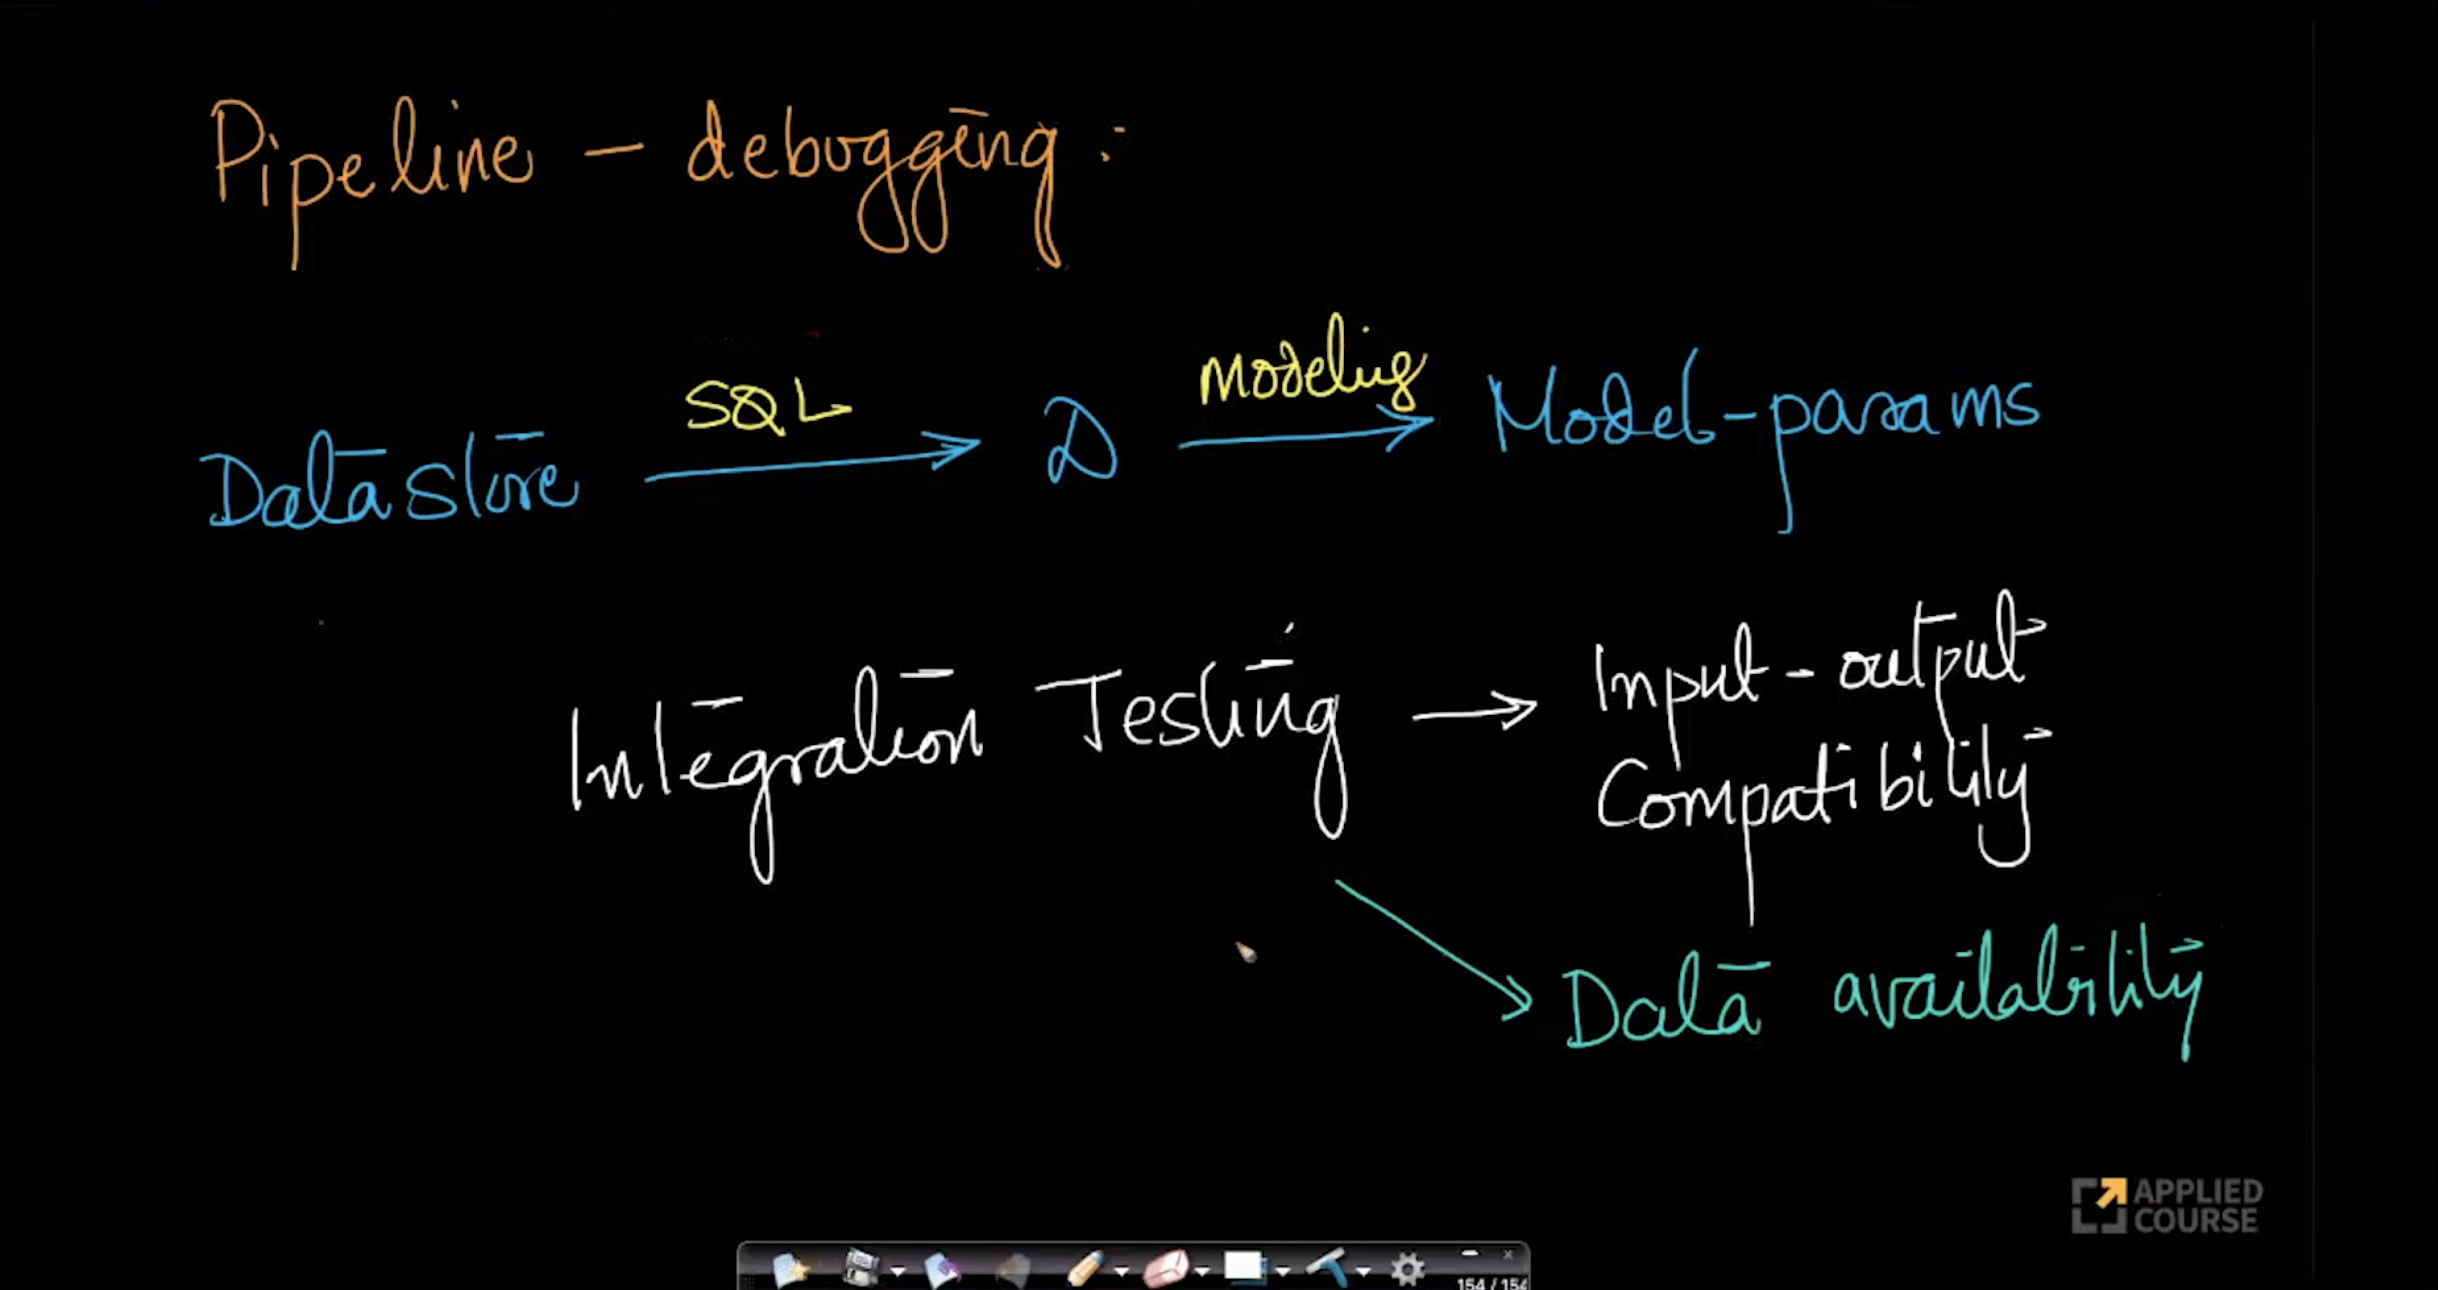 Pipeline - debugging :
SQL
Modeling
Data store
D
Model-params
Integration Testing
Input-output
Compatibility
Data availability
APPLIED
COURSE
154 / 154